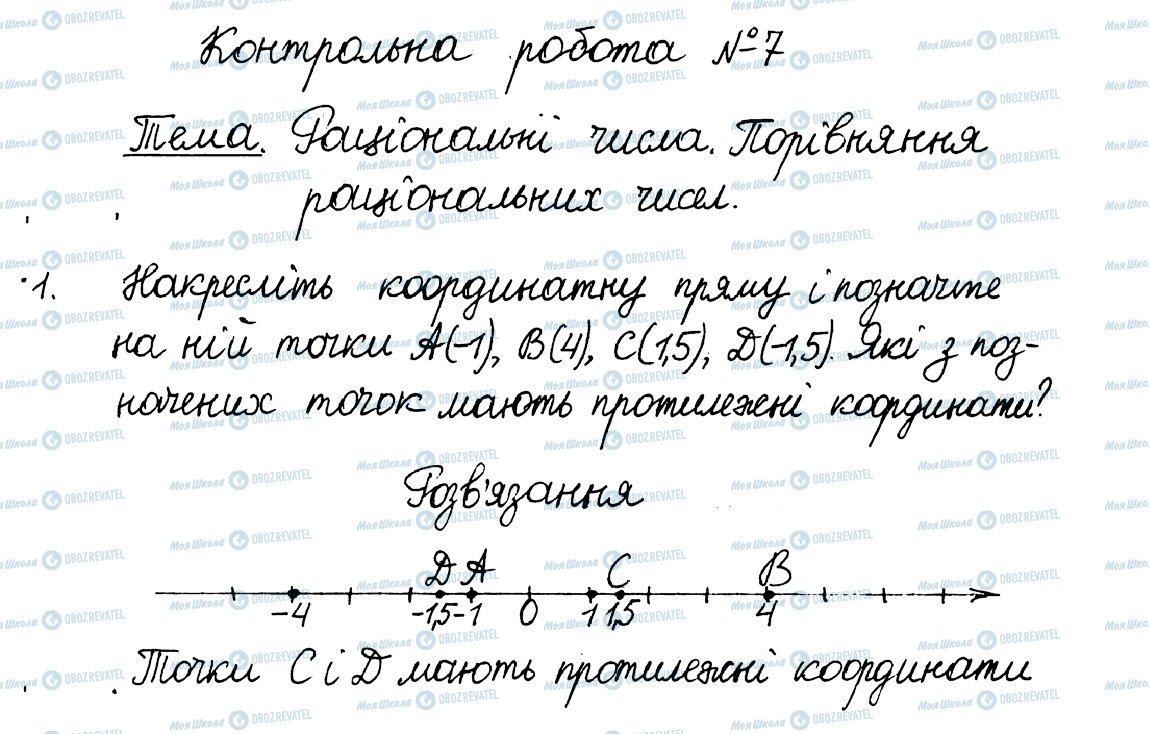 Контрольна робота №7
Тема. Раціональні числа. Порівняння
раціональних чисел.
1. Накресліть координатну пряму і позначте
на ній точки A(-1), B(4), C(1,5), D(-1,5). Які з поз-
начених точок мають протилежні координати?
Розв'язання
D A C B
-4 -1,5 -1 0 1 1,5 4
Точки C і D мають протилежні координати